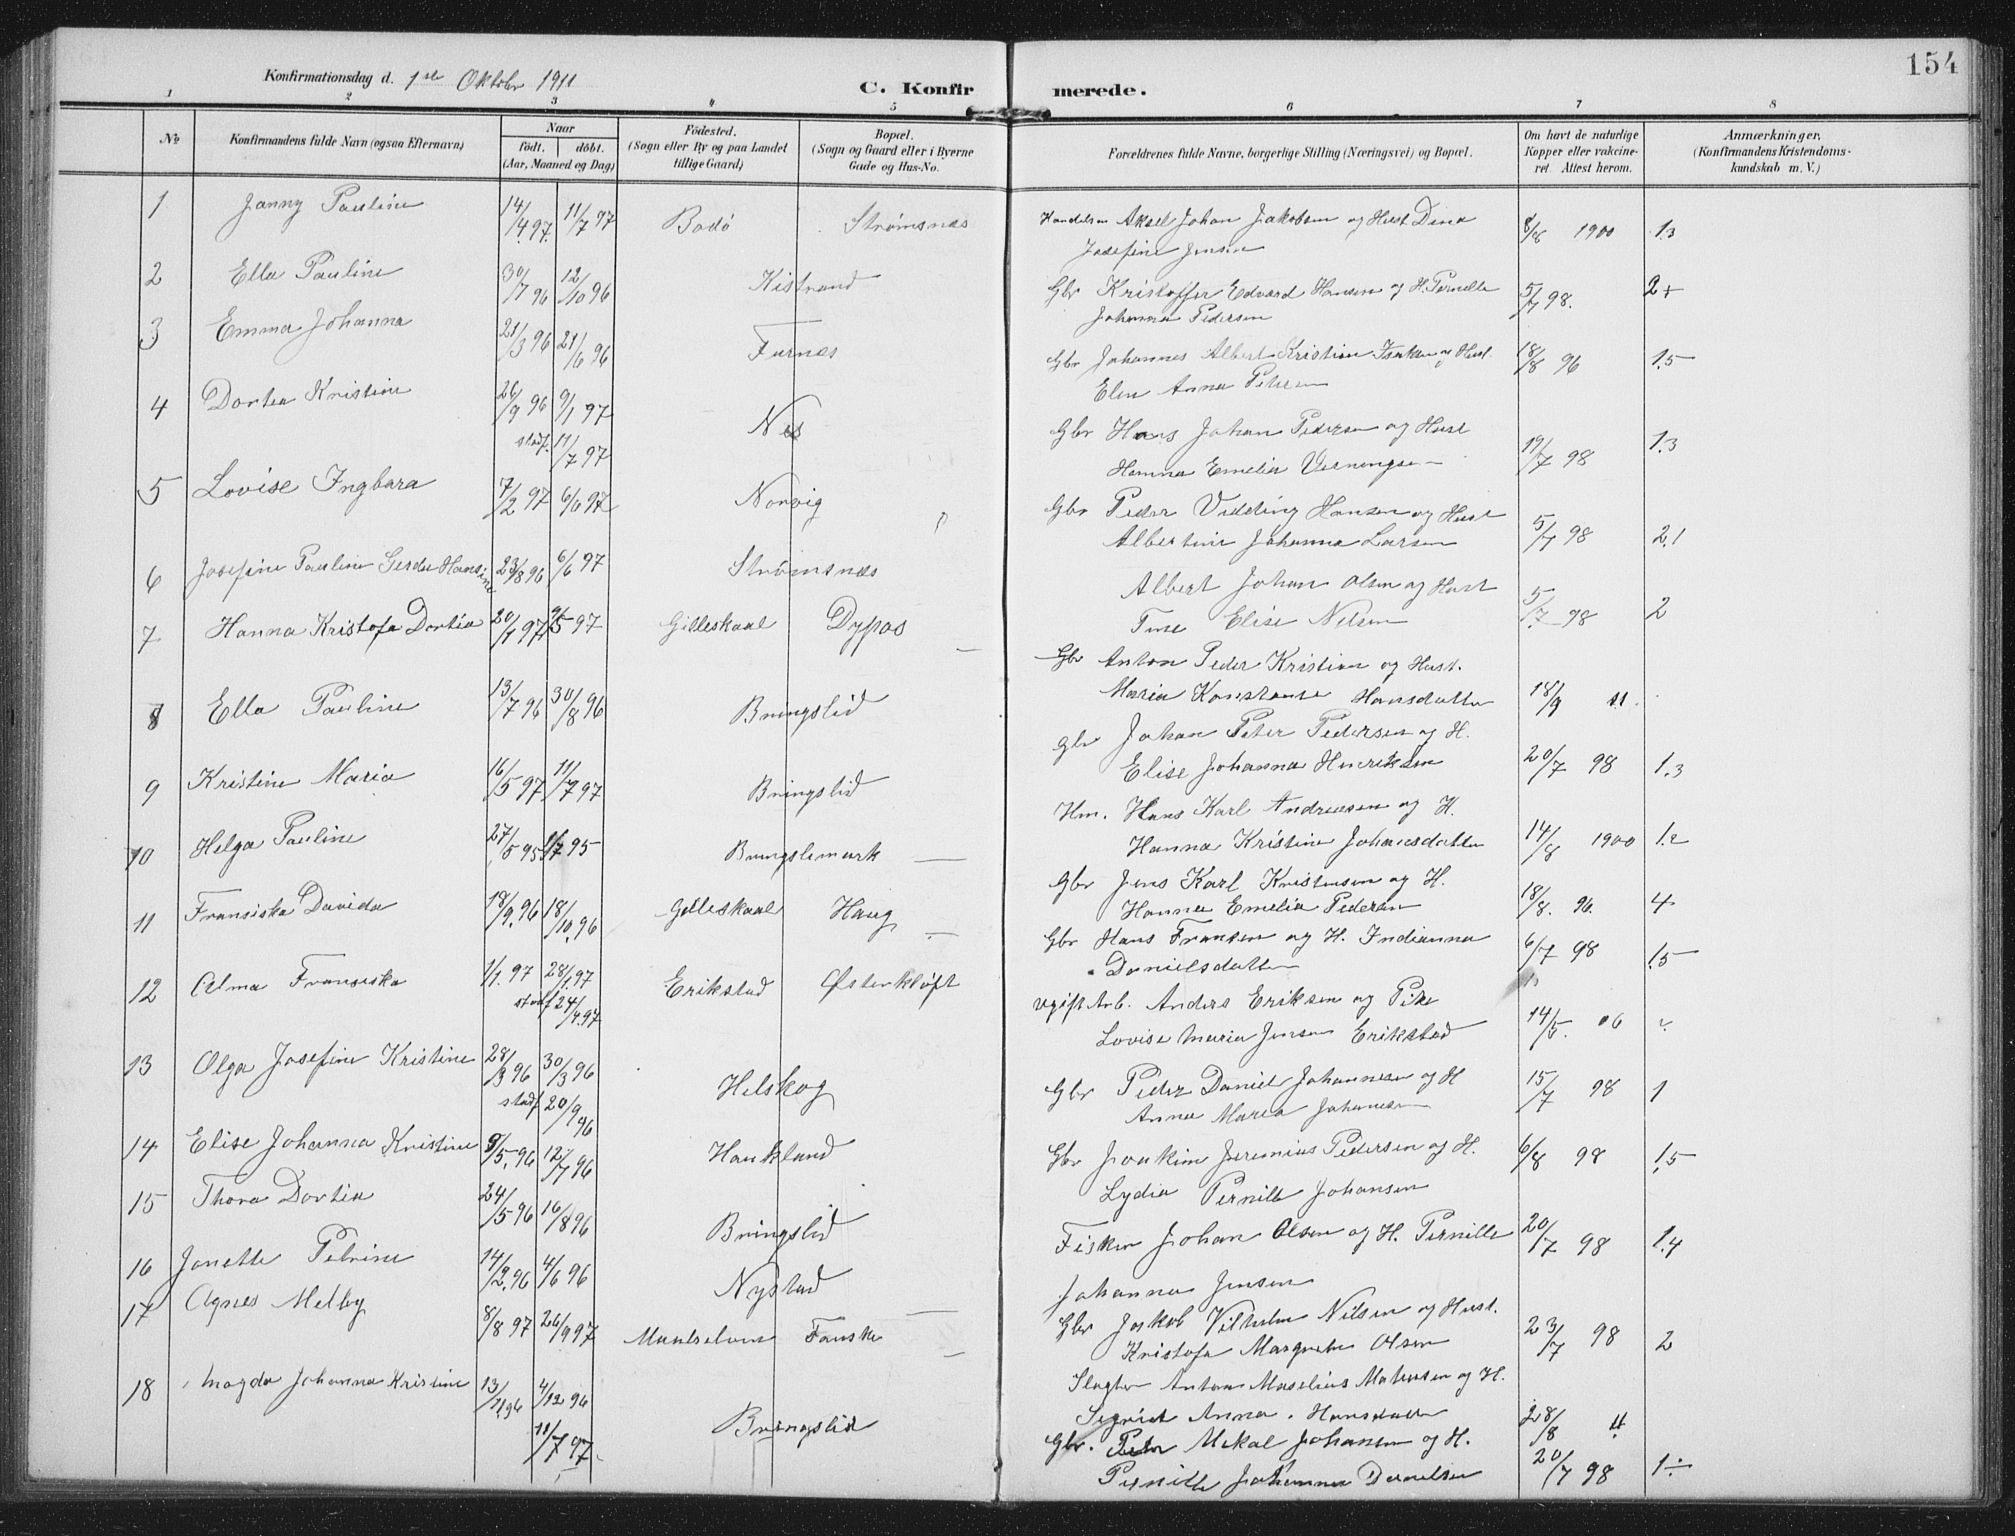 154
Konfirmationsdag d. 1ste Oktober 1911
C. Konfirmerede.
1 2 3 4 5 6 7 8
No
Konfirmandens fulde Navn (ogsaa Efternavn)
Naar
født. døbt.
(Aar, Maaned og Dag)
Fødested.
(Sogn eller By og paa Landet
tillige Gaard)
Bopæl.
(Sogn og Gaard eller i Byerne
Gade og Hus-No.
Forældrenes fulde Navne, borgerlige Stilling (Næringsvei) og Bopæl.
Om havt de naturlige
Kopper eller vakcine-
ret. Attest herom.
Anmærkninger.
(Konfirmandens Kristendoms-
kundskab m. V.)
1 Janny Pauline 14/4.97. 11/7 97 Bodö Strømsnæs
Aksel Johan Jakobsen og Hust Dina 8/8 1900 1.3
Josefine Jensen
2 Ella Pauline 30/7 96 12/10 96 Kistrand
Gbr Kristoffer Edvard Hansen og H. Pernille 5/7 98. 2+
Johanna Pedersen
3 Emma Johanna 23/3 96 21/6 96 Furnæs
Gbr Johannes Albert Kristian Isaksen og Hust. 18/8 96 1.5
Elen Anna Petersen
4 Dortea Kristine 26/9 96 9/1 97 Nes
stadf. 11/7 97
Gbr Hans Johan Pedersen og Hust 19/7 98 1.3
Hanna Emelia
5 Lovise Ingbara 7/2 97 6/6 97 Norvig
Gbr Peder Hansen og Hust 5/7 98 2.1
Albertine Johanna Larsen
6 Josefine Pauline Gerda Hansine 23/8 96 6/6 97 Strømsnæs
Albert Johan Olsen og Hust 5/7 98 2
Elise Nilsen
7 Hanna Kristofa Dortea 20/1 97 9/5 97 Gilleskaal Dypos
Gbr Anton Peder Kristian og Hust.
Maria Konstanse Hansdatter 18/9 11.
8 Ella Pauline 13/7 96 30/8 96 Bringslid
Gbr Johan Peter Pedersen og H.
Elise Johanna Henriksen 20/7 98 1.3
9 Kristine Maria 16/5 97 11/7 97 Bringslid
Hm. Hans Karl Andreasen og H.
Hanna Kristine Johansdatter 14/8 1900 1.2
10 Helga Pauline 27/5 95 95 Bringslimark
Gbr Jens Karl Kristensen og H.
Hanna Emelia Pedersen 18/8. 96. 4
11 Fransiska Davida 18/9.96 18/10.96 Gilleskaal Haug
Gbr Hans Fransen og H. Indianna 6/7 98 1.5
Danielsdatter
12 Alma Fransiska 1/1. 97 28/1.97 Erikstad Østerkløft
stadf 24/4.97
ugift Arb. Anders Eriksen og Pike
Lovise Maria Jensen Erikstad 14/5. 06
13 Olga Josefine Kristine 28/3 96 30/3 96 Helskog
stadf 20/9 96
Gbr Peder Daniel Johannesen og H 15/7 98 1
Anna Maria Johansen
14 Elise Johanna Kristine 9/5. 96 12/7 96 Haukland
Gbr Joakim Jeremias Pedersen og H. 6/8 98 1.5
Lydia Pernille Johansen
15 Thora Dortea 24/5 96 16/8 96 Bringslid
Fisker Johan Olsen og H. Pernille 20/7 98 1.4
Johanna Jensen
16 Janette Petrine 14/2.96 4/6 96 Nystad
Gbr Jakob Vilhelm Nilsen og Hust.
Kristofa Margrethe Olsen 23/7 98 2
17 Agnes Melby 8/8 97 26/9 97 Maalselven Fauske
Slagter Anton Maselius Matisen og H.
Sigrid Anna Hansdatter 28/8 11
18 Magda Johanna Kristine 13/11 96 4/12 96 Bringslid
11/7 97
Gbr. Peter Mekal Johansen og H.
Pernille Johanna Danielsen 20/7 98 1÷